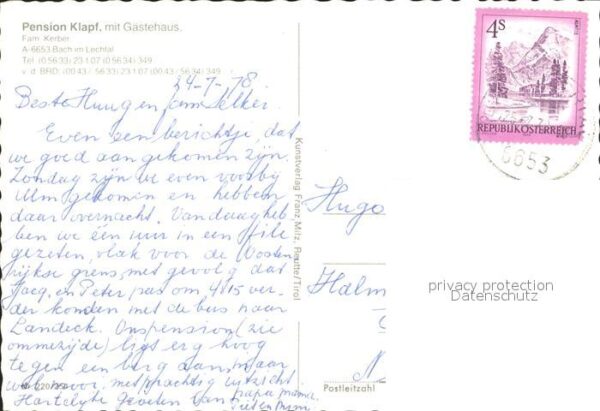 Pension Klapf, mit Gästehaus,
Fam. Kerber
A-6653 Bach im Lechtal
Tel. (0 56 33) 23 1 07 (0 56 34) 349
v. d. BRD: (00 43 / 56 33) 23 1 07 (00 43 / 56 34) 349
24-7-'78
Beste en
Even een berichtje, dat
we goed aangekomen zijn.
Zondag zijn we even voorby
Ulm gekomen en hebben
daar overnacht. Vandaag heb
ben we één uur in een file
gezeten, vlak voor de Oosten
rijkse grens, met gevolg dat
Jacq. en Peter pas om 4815 ver-
der konden met de bus naar
Landeck. Ons pension (zie
ommezijde) ligt erg hoog
tegen een berg aan, maar
wel mooi, met prachtig uitzicht.
Hartelyke Groeten van papa mama
Kunstverlag Franz Milz, Reutte/Tirol
4S
REPUBLIK ÖSTERREICH
6653
Hugo
Halm
N
privacy protection
Datenschutz
Postleitzahl